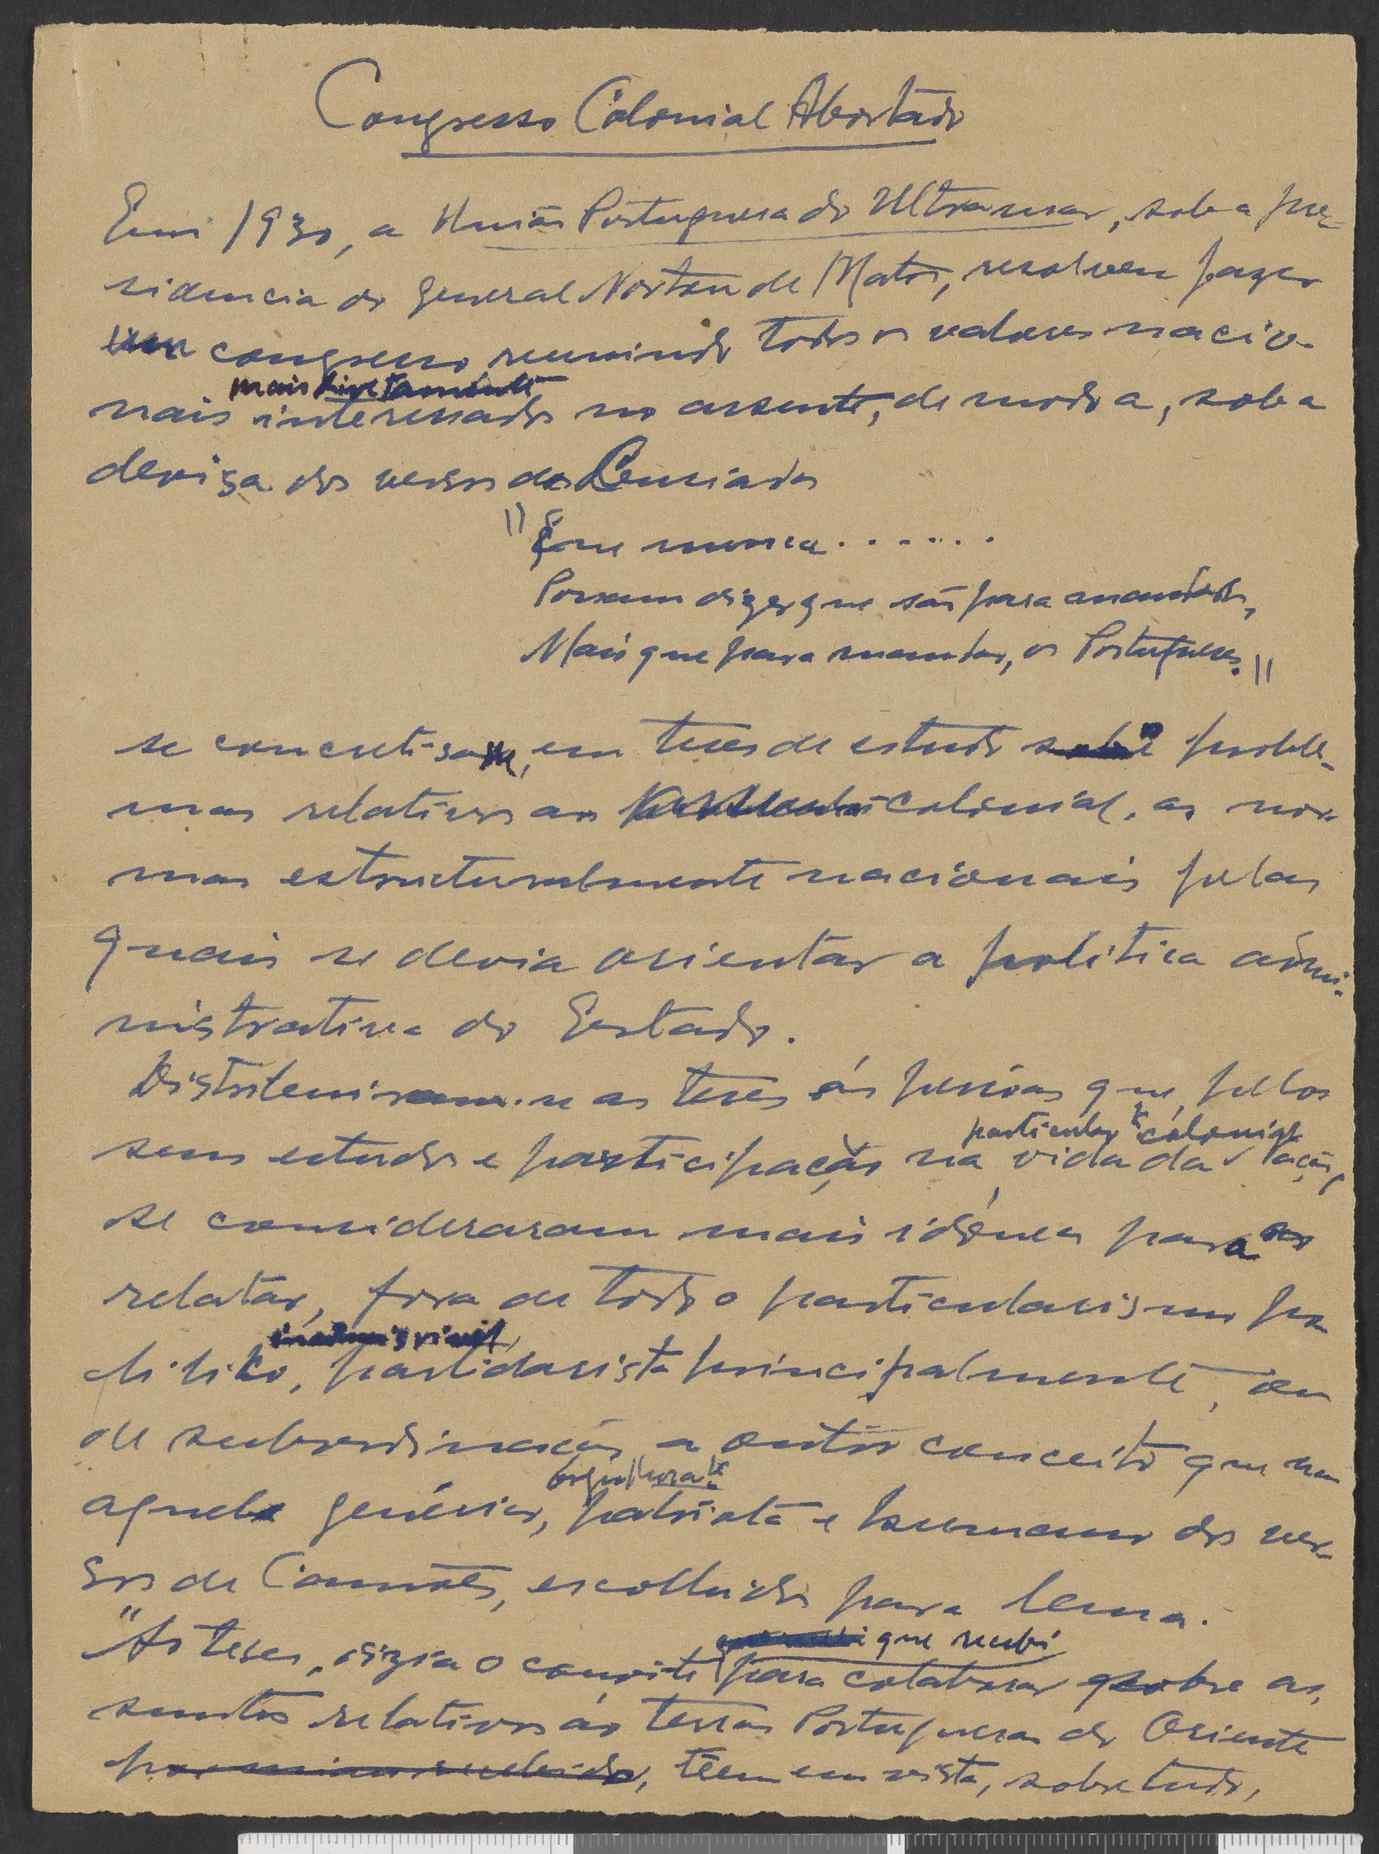 Congresso Colonial Abortado
Em 1930, a União Portuguesa do Ultramar, sob a pre-
sidencia do general Norton de Matos, resolveu fazer
um congresso, reunindo todos os valores nacio-
mais directamente
nais interessados no assunto, de modo a, sob a
devisa dos versos dos Lusiadas
"Que nunca.......
Possam dizer que são para mandados,
Mais que para mandar, os Portugueses."
se concretisasse, em teses de estudo sobre proble-
mas relativos ao colonial, as nor-
mas estructuralmente nacionais pelas
quais se devia orientar a politica admi-
nistrativa do Estado.
Distribuiram-se as teses ás pessoas que, pelos
particular colonial
seus estudos e participação na vida da Nação,
se consideraram mais idóneas para as
relatar, fora de todo o particularismo po-
litico, partidarista principalmente, ou
de subordinação a outro conceito que não
orgulhosa
aquele genérico, patriota e humano dos ver-
sos de Camões, escolhido para lema.
que recebi
"As teses, dizia o convite para colaborar sobre as-
suntos relativos ás terras Portuguesas do Oriente
por mim recebido, têem em vista, sobretudo,